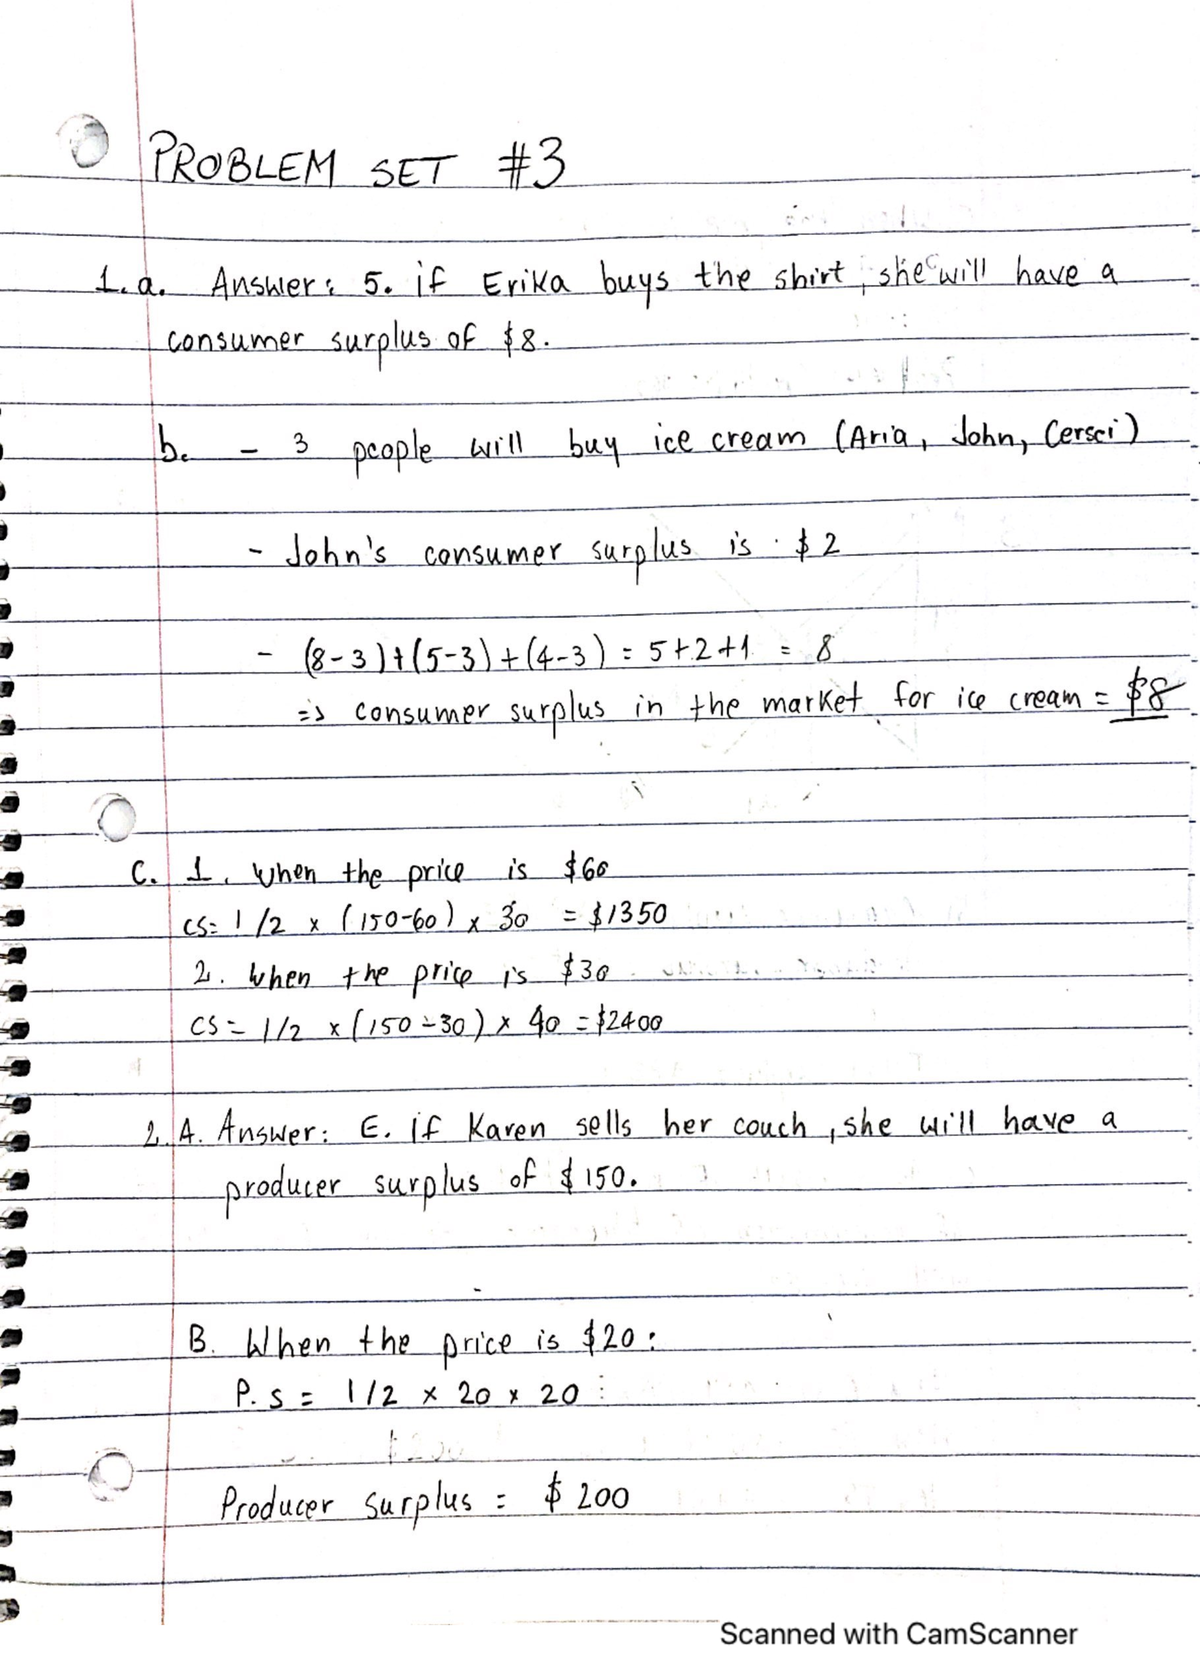 PROBLEM SET #3
1. a. Answer: 5. if Erika buys the shirt, she will have a
consumer surplus of $8.
b. - 3 people will buy ice cream (Aria, John, Cersei)
- John's consumer surplus is $2
- (8-3)+(5-3)+(4-3) = 5+2+1 = 8
=> consumer surplus in the market for ice cream = $8
C. 1. When the price is $60
CS= 1/2 x (150-60) x 30 = $1350
2. When the price is $30
CS = 1/2 x (150-30) x 40 = $2400
2. A. Answer: E. if Karen sells her couch, she will have a
producer surplus of $150.
B. When the price is $20:
P.S = 1/2 x 20 x 20
Producer surplus = $200
Scanned with CamScanner